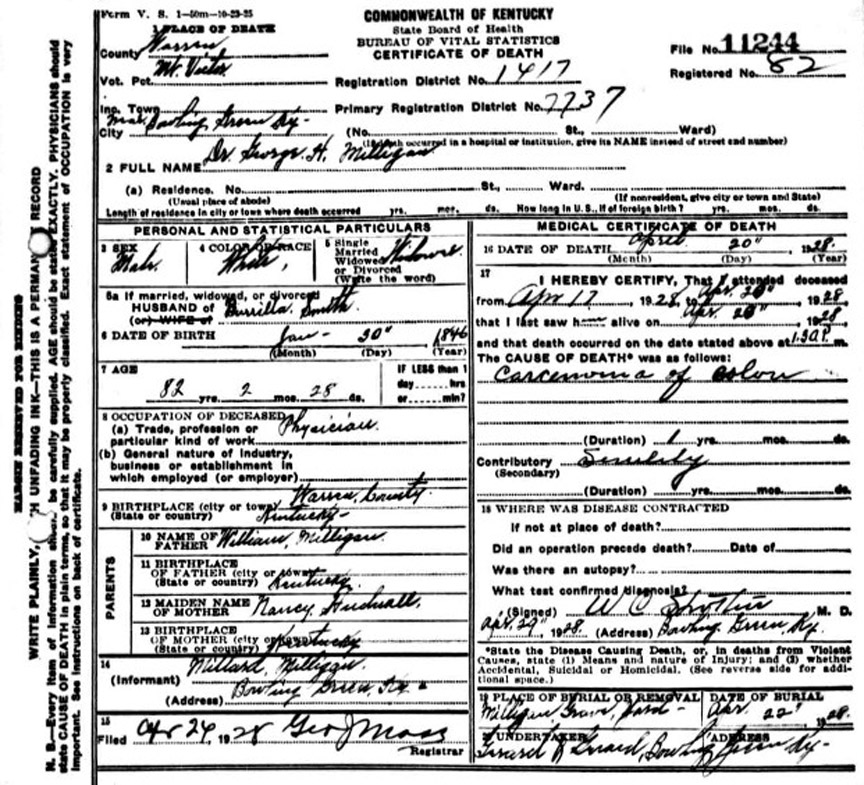 Form V. S. 1-50m-10-23-25
COMMONWEALTH OF KENTUCKY
State Board of Health
BUREAU OF VITAL STATISTICS
CERTIFICATE OF DEATH
File No. 11244
Registered No. 82
1 PLACE OF DEATH
County Warren
Vot. Pct. Mt. Victor
Registration District No. 1417
Inc. Town
Primary Registration District No. 7737
City Bowling Green Ky-
(No. St., Ward)
(If death occurred in a hospital or institution, give its NAME instead of street and number)
2 FULL NAME Dr. George H. Milligan
(a) Residence. No. St., Ward.
(Usual place of abode) (If nonresident, give city or town and State)
Length of residence in city or town where death occurred yrs. mos. ds. How long in U.S., if of foreign birth? yrs. mos. ds.
PERSONAL AND STATISTICAL PARTICULARS
3 SEX Male
4 COLOR OR RACE White,
5 Single Married Widowed or Divorced (Write the word) Widower
5a If married, widowed, or divorced
HUSBAND of Burrilla Smith
(or) WIFE of
6 DATE OF BIRTH Jan- 30" 1846
(Month) (Day) (Year)
7 AGE
82 yrs. 2 mos. 28 ds.
IF LESS than 1 day hrs or min?
8 OCCUPATION OF DECEASED
(a) Trade, profession or particular kind of work Physician
(b) General nature of industry, business or establishment in which employed (or employer)
9 BIRTHPLACE (city or town) Warren, County
(State or country) Kentucky-
PARENTS
10 NAME OF FATHER William, Milligan
11 BIRTHPLACE OF FATHER (city or town) (State or country) Kentucky
12 MAIDEN NAME OF MOTHER Nancy,
13 BIRTHPLACE OF MOTHER (city or town) (State or country) Kentucky
14
(Informant) Millard, Milligan
(Address) Bowling Green, Ky
15
Filed Apr 24, 1928 Geo J Moss
Registrar
MEDICAL CERTIFICATE OF DEATH
16 DATE OF DEATH April 20" 1928.
(Month) (Day) (Year)
17
I HEREBY CERTIFY, That I attended deceased
from Apr 17, 1928, to Apr. 20", 1928
that I last saw h alive on Apr. 20", 1928
and that death occurred on the date stated above at 1.30P. m.
The CAUSE OF DEATH* was as follows:
Carcenoma of colon
(Duration) 1 yrs. mos. ds.
Contributory Senility
(Secondary)
(Duration) yrs. mos. ds.
18 WHERE WAS DISEASE CONTRACTED
If not at place of death?
Did an operation precede death? Date of
Was there an autopsy?
What test confirmed diagnosis?
(Signed) W C M. D.
Apr. 24", 1928. (Address) Bowling Green, Ky.
*State the Disease Causing Death, or, in deaths from Violent
Causes, state (1) Means and nature of Injury; and (2) whether
Accidental, Suicidal or Homicidal. (See reverse side for additional space.)
19 PLACE OF BURIAL OR REMOVAL Milligan Grave, Yard-
DATE OF BURIAL Apr. 22" 1928.
20 UNDERTAKER Gerard & Gerard,
ADDRESS Bowling Green Ky-
MARGIN RESERVED FOR BINDING
WRITE PLAINLY, UNFADING INK—THIS IS A PERMAN RECORD
N. B.—Every item of information be carefully supplied. AGE should be stated EXACTLY. PHYSICIANS should
state CAUSE OF DEATH in plain terms, so that it may be properly classified. Exact statement of OCCUPATION is very
important. See instructions on back of certificate.